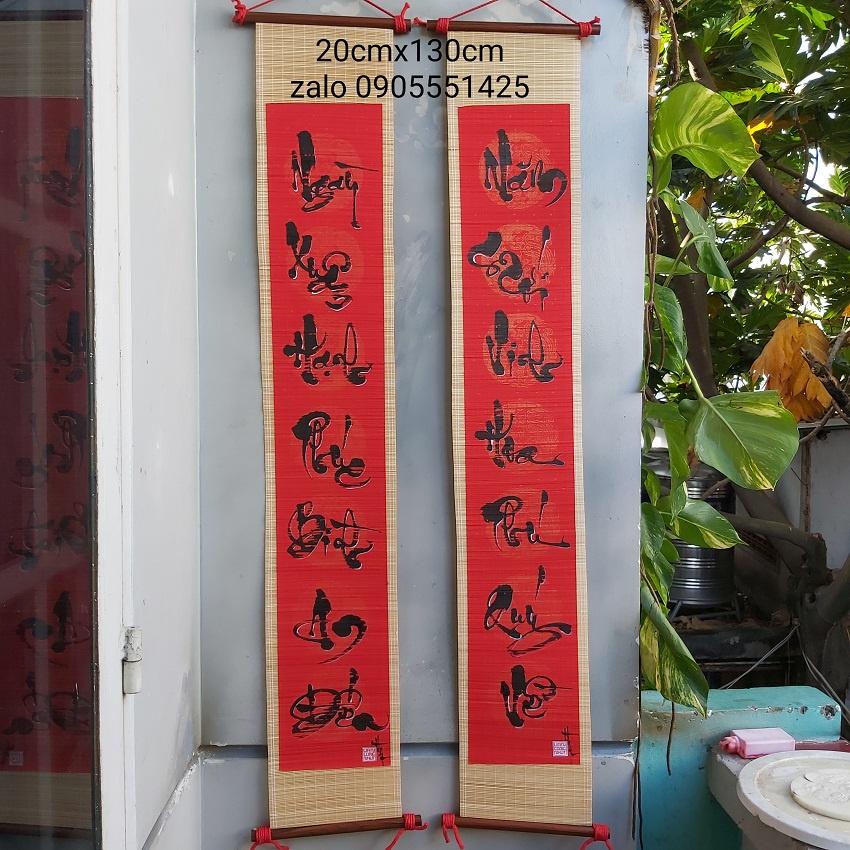 20cmx130cm
zalo 0905551425
Ngày
Xuân
Hạnh
Phúc
Bình
An
Đến
Năm
Mới
Vinh
Hoa
Phú
Quý
Về